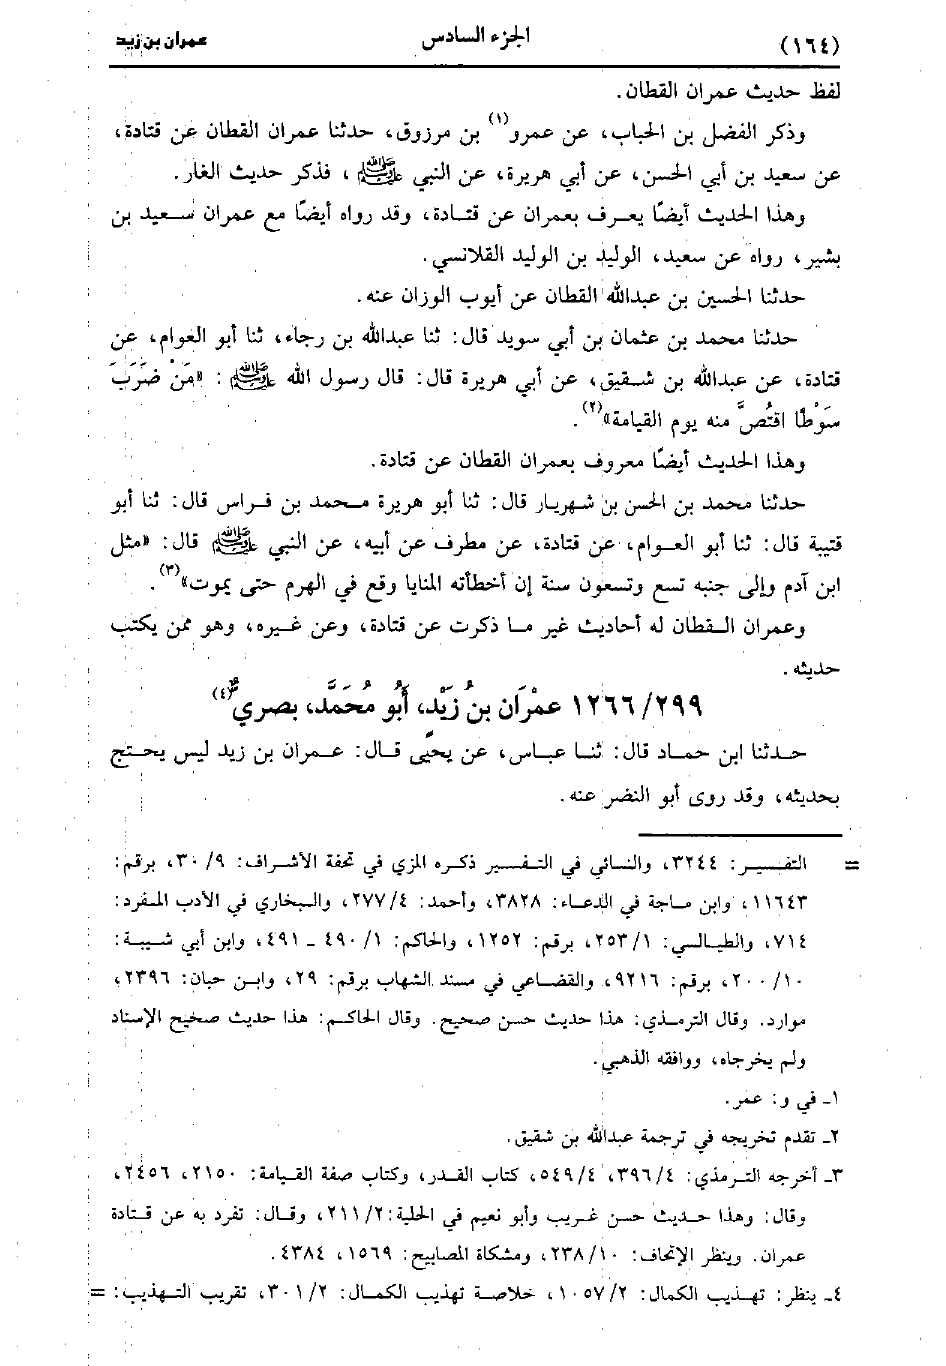 (١٦٤) الجزء السادس عمران بن زيد
لفظ حديث عمران القطان.
وذكر الفضل بن الحباب، عن عمرو(١) بن مرزوق، حدثنا عمران القطان عن قتادة،
عن سعيد بن أبي الحسن، عن أبي هريرة، عن النبي ﷺ، فذكر حديث الغار.
وهذا الحديث أيضًا يعرف بعمران عن قتادة، وقد رواه أيضًا مع عمران سعيد بن
بشير، رواه عن سعيد، الوليد بن الوليد القلانسي.
حدثنا الحسين بن عبدالله القطان عن أيوب الوزان عنه.
حدثنا محمد بن عثمان بن أبي سويد قال: ثنا عبدالله بن رجاء، ثنا أبو العوام، عن
قتادة، عن عبدالله بن شقيق، عن أبي هريرة قال: قال رسول الله ﷺ: «مَنْ ضَرَبَ
سَوْطًا اقتُصَّ منه يوم القيامة»(٢).
وهذا الحديث أيضًا معروف بعمران القطان عن قتادة.
حدثنا محمد بن الحسن بن شهريار قال: ثنا أبو هريرة محمد بن فراس قال: ثنا أبو
قتيبة قال: ثنا أبو العوام، عن قتادة، عن مطرف عن أبيه، عن النبي ﷺ قال: «مثل
ابن آدم وإلى جنبه تسع وتسعون سنة إن أخطأته المنايا وقع في الهرم حتى يموت»(٣).
وعمران القطان له أحاديث غير ما ذكرت عن قتادة، وعن غيره، وهو ممن يكتب
حديثه.
١٢٦٦/٢٩٩ عمْرَان بنُ زَيْد، أَبُو مُحَمَّد، بصريٌّ(٤)
حدثنا ابن حماد قال: ثنا عباس، عن يحيى قال: عمران بن زيد ليس يحتج
بحديثه، وقد روى أبو النضر عنه.
= التفسير: ٣٢٤٤، والنسائي في التفسير ذكره المزي في تحفة الأشراف: ٣٠/٩، برقم:
١١٦٤٣، وابن ماجة في الدعاء: ٣٨٢٨، وأحمد: ٢٧٧/٤، والبخاري في الأدب المفرد:
٧١٤، والطيالسي: ٢٥٣/١، برقم: ١٢٥٢، والحاكم: ٤٩٠/١ ـ ٤٩١، وابن أبي شيبة:
٢٠٠/١٠، برقم: ٩٢١٦، والقضاعي في مسند الشهاب برقم: ٢٩، وابن حبان: ٢٣٩٦،
موارد. وقال الترمذي: هذا حديث حسن صحيح. وقال الحاكم: هذا حديث صحيح الإسناد
ولم يخرجاه، ووافقه الذهبي.
١ـ في و: عمر.
٢ـ تقدم تخريجه في ترجمة عبدالله بن شقيق.
٣ـ أخرجه الترمذي: ٣٩٦/٤، ٥٤٩/٤، كتاب القدر، وكتاب صفة القيامة: ٢١٥٠، ٢٤٥٦،
وقال: وهذا حديث حسن غريب وأبو نعيم في الحلية: ٢١١/٢، وقال: تفرد به عن قتادة
عمران. وينظر الإتحاف: ٢٣٨/١٠، ومشكاة المصابيح: ١٥٦٩، ٤٣٨٤.
٤ـ ينظر: تهذيب الكمال: ١٠٥٧/٢، خلاصة تهذيب الكمال: ٣٠١/٢، تقريب التهذيب: =